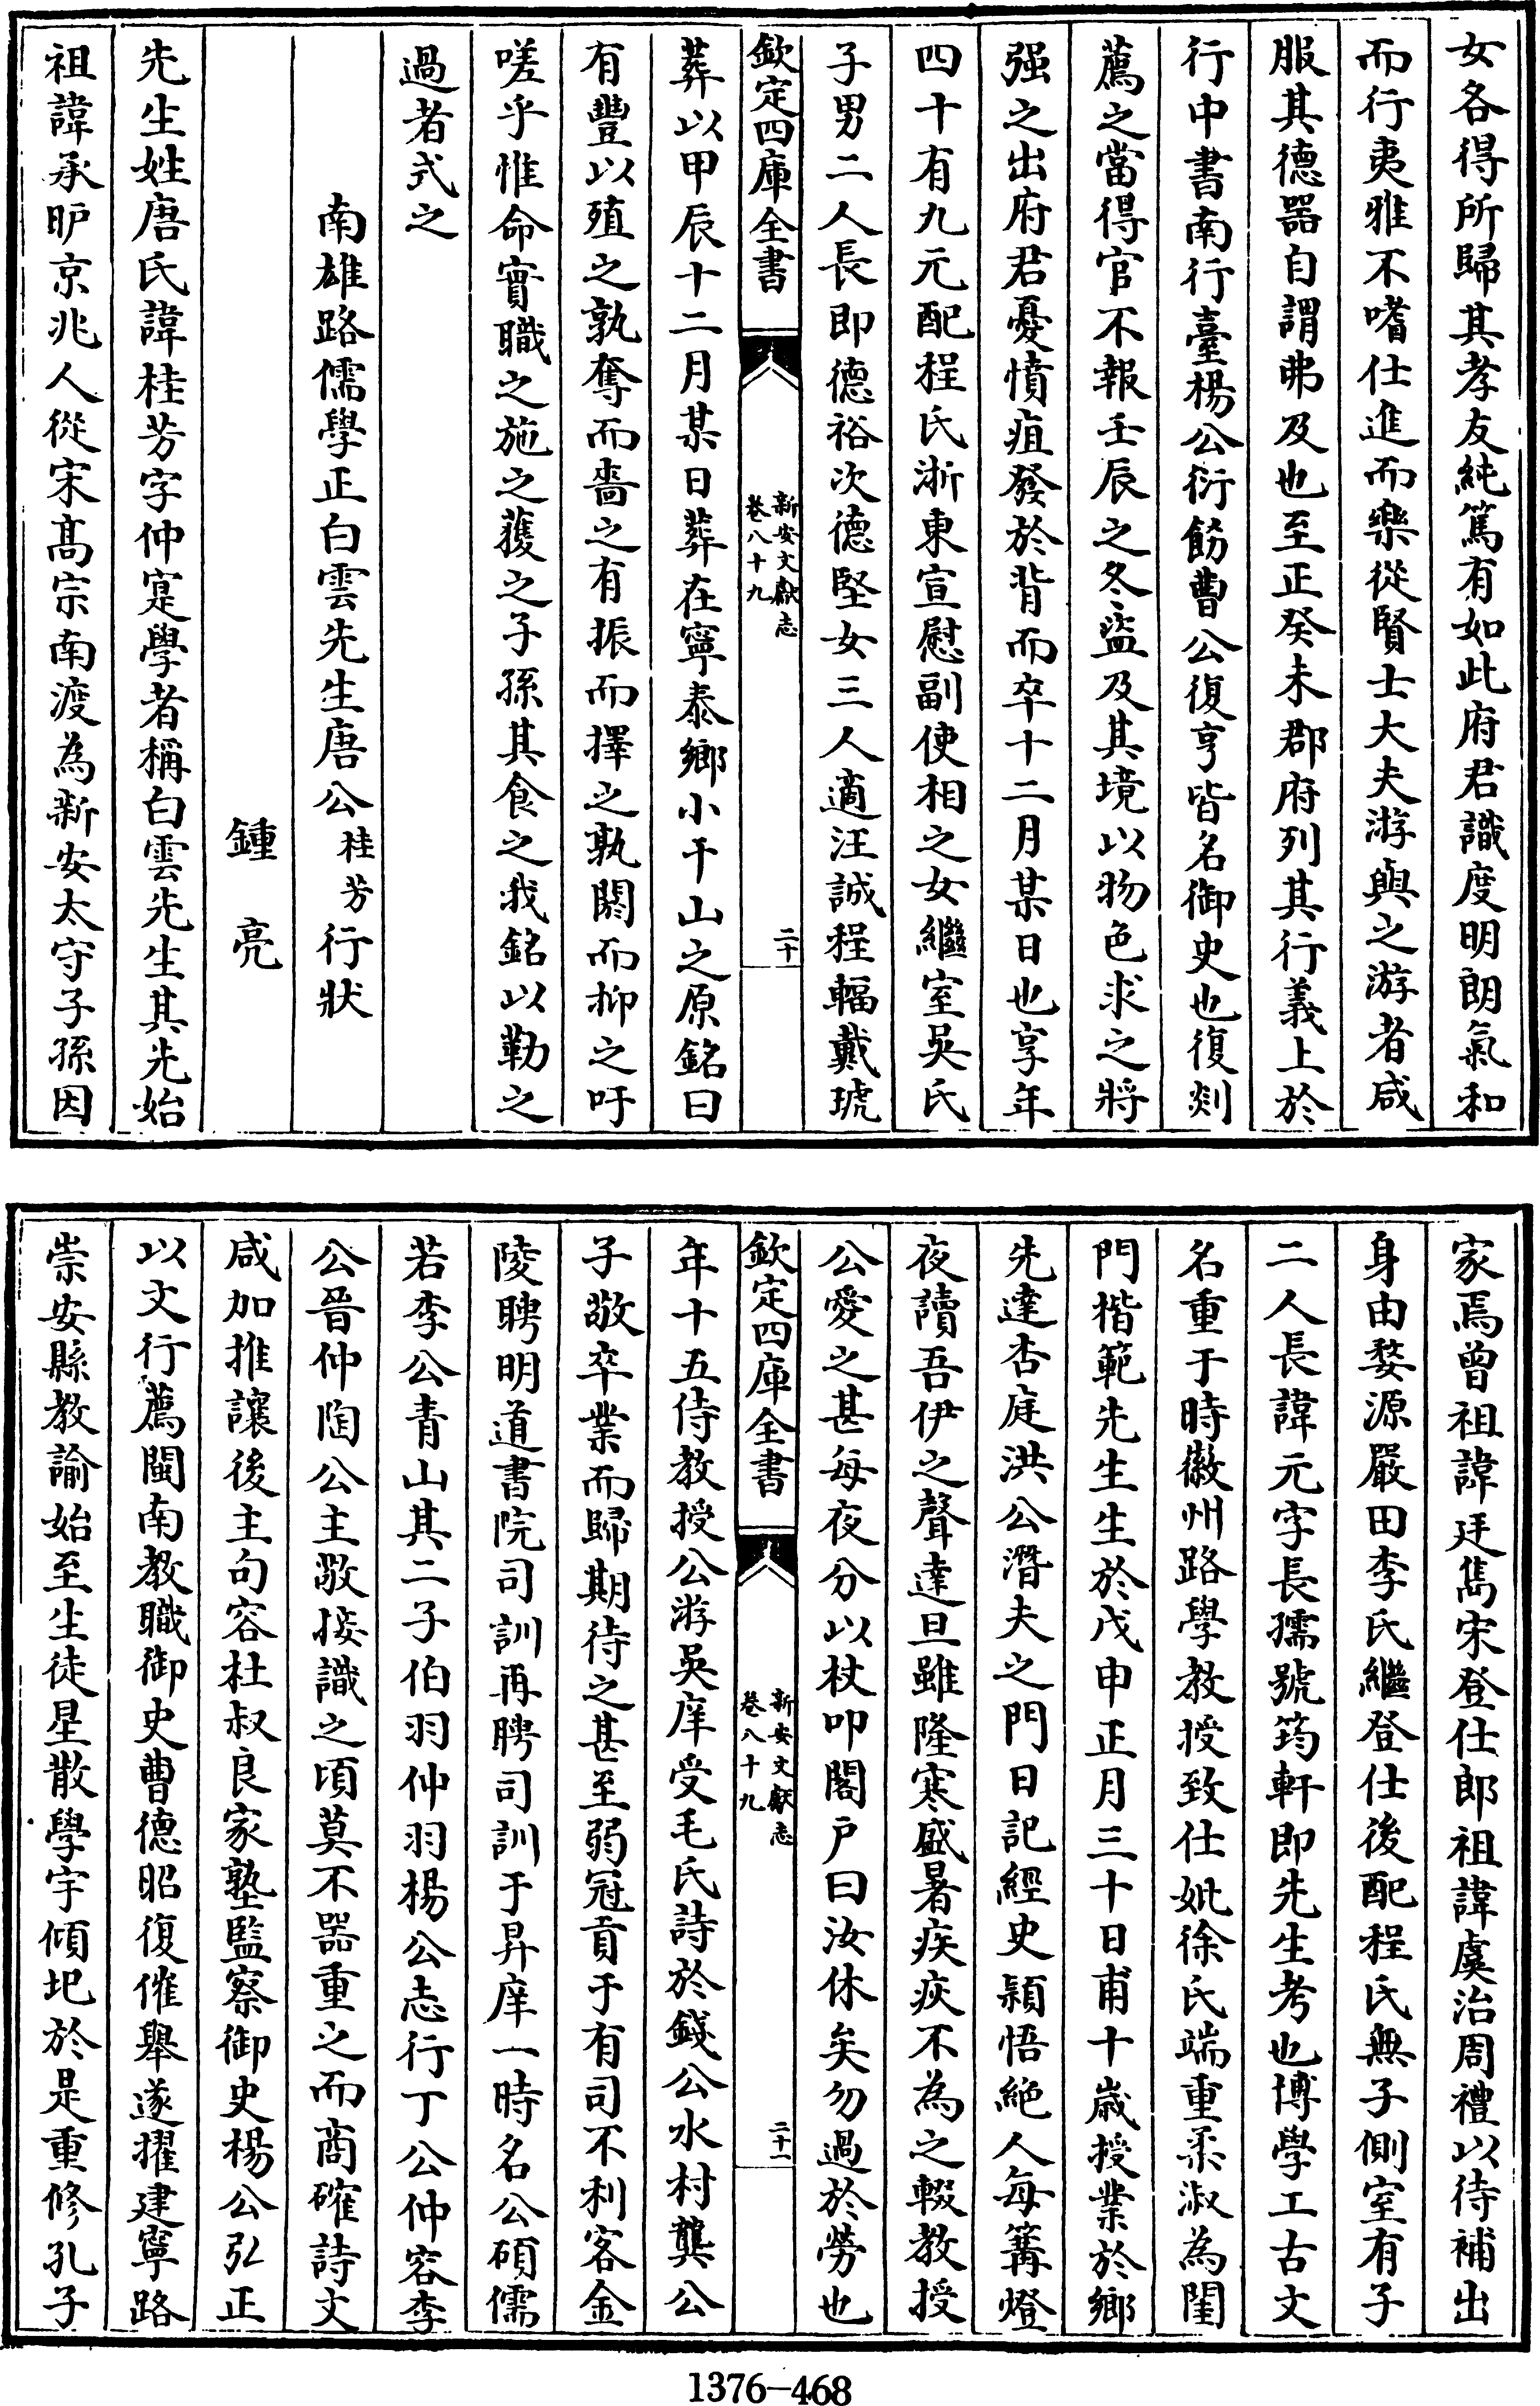 女各得所歸其孝友純篤有如此府君識度明朗氣和
而行夷雅不嗜仕進而樂從賢士大夫游與之游者咸
服其德器自謂弗及也至正癸未郡府列其行義上於
行中書南行臺楊公衍飭曹公復亨皆名御史也復剡
薦之當得官不報壬辰之冬盜及其境以物色求之將
强之出府君憂憤疽發於背而卒十二月某日也享年
四十有九元配程氏浙東宣慰副使相之女繼室吳氏
子男二人長即德裕次德堅女三人適汪誠程輻戴琥
欽定四庫全書
新安文獻志
卷八十九
二十
葬以甲辰十二月某日葬在寧泰鄉小干山之原銘曰
有豐以殖之孰奪而嗇之有振而擇之孰閼而抑之吁
嗟乎惟命實職之施之蒦之子孫其食之我銘以勒之
過者式之
南雄路儒學正白雲先生唐公桂芳行狀
鍾亮
先生姓唐氏諱桂芳字仲寔學者稱白雲先生其先始
祖諱承昈京兆人從宋髙宗南渡為新安太守子孫因
家焉曾祖諱廷雋宋登仕郎祖諱虞治周禮以待補出
身由婺源嚴田李氏繼登仕後配程氏無子側室有子
二人長諱元字長孺號筠軒即先生考也博學工古文
名重于時徽州路學教授致仕妣徐氏端重柔淑為閨
門楷範先生生於戊申正月三十日甫十歳授業於鄉
先達杏庭洪公潛夫之門日記經史穎悟絶人每篝燈
夜讀吾伊之聲達旦雖隆寒盛暑疾疢不為之輟教授
公愛之甚每夜分以杖叩閣户曰汝休矣勿過於勞也
欽定四庫全書
新安文獻志
卷八十九
二十一
年十五侍教授公游吳庠受毛氏詩於錢公水村龔公
子敬卒業而歸期待之甚至弱冠貢于有司不利客金
陵聘明道書院司訓再聘司訓于昇庠一時名公碩儒
若李公青山其二子伯羽仲羽楊公志行丁公仲容李
公晉仲陶公主敬接識之頃莫不器重之而商確詩文
咸加推讓後主句容杜叔良家塾監察御史楊公弘正
以文行薦閩南教職御史曹德昭復催舉遂擢建寧路
崇安縣教諭始至生徒星散學宇傾圯於是重修孔子
1376-468